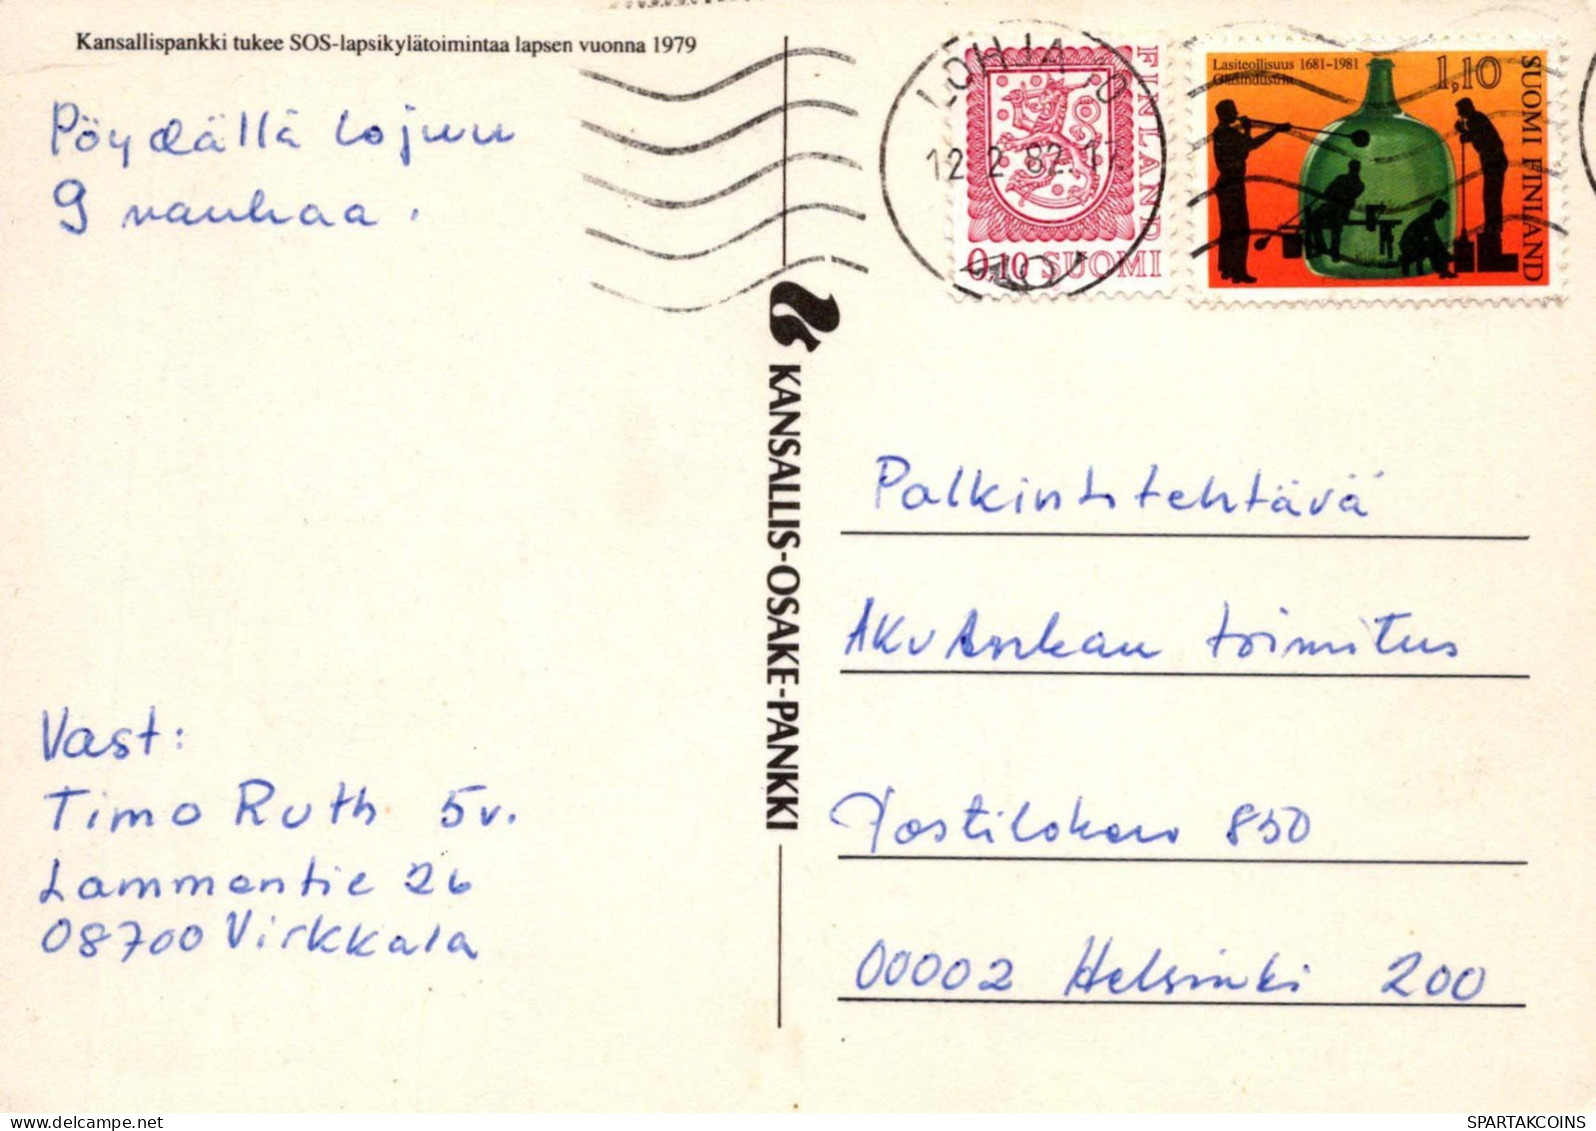 Kansallispankki tukee SOS-lapsikylätoimintaa lapsen vuonna 1979
Pöydällä lojuu
9 nauhaa.
Vast:
Timo Ruth 5v.
Lammentie 26
08700 Virkkala
KANSALLIS-OSAKE-PANKKI
LOHJA 10
12.2.82.17
FINLAND
0,10 SUOMI
Lasiteollisuus 1681-1981
Glasindustrin
1,10
SUOMI FINLAND
Palkintotehtävä
Aku Ankan toimitus
Postilokero 850
00002 Helsinki 200
SPARTAKCOINS